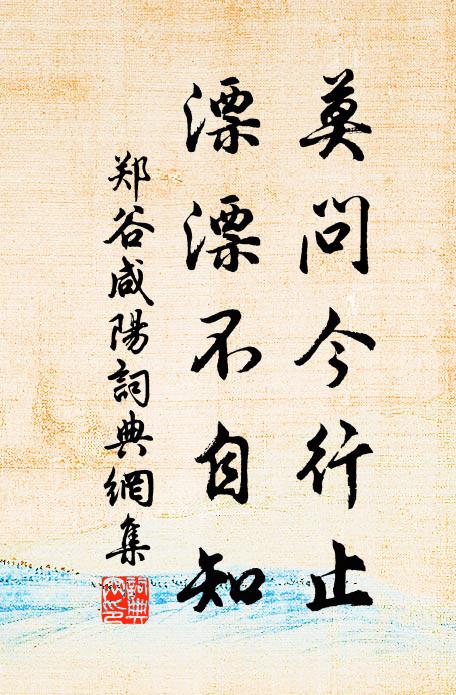 莫问今行止
漂漂不自知
郑谷咸陽詞典網集